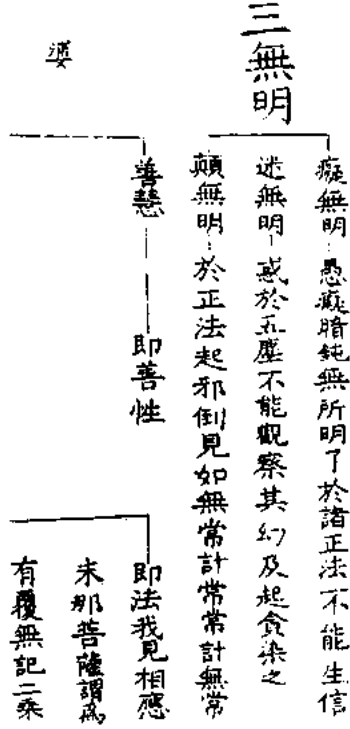 三無明
癡無明：愚癡暗鈍無所明了於諸正法不能生信
迷無明－惑於五塵不能觀察其幻及起貪染之
顛無明：於正法起邪倒見如無常計常常計無常
善慧——即善性
即法我見相應
末那菩薩謂為
有覆無記二乘
婆